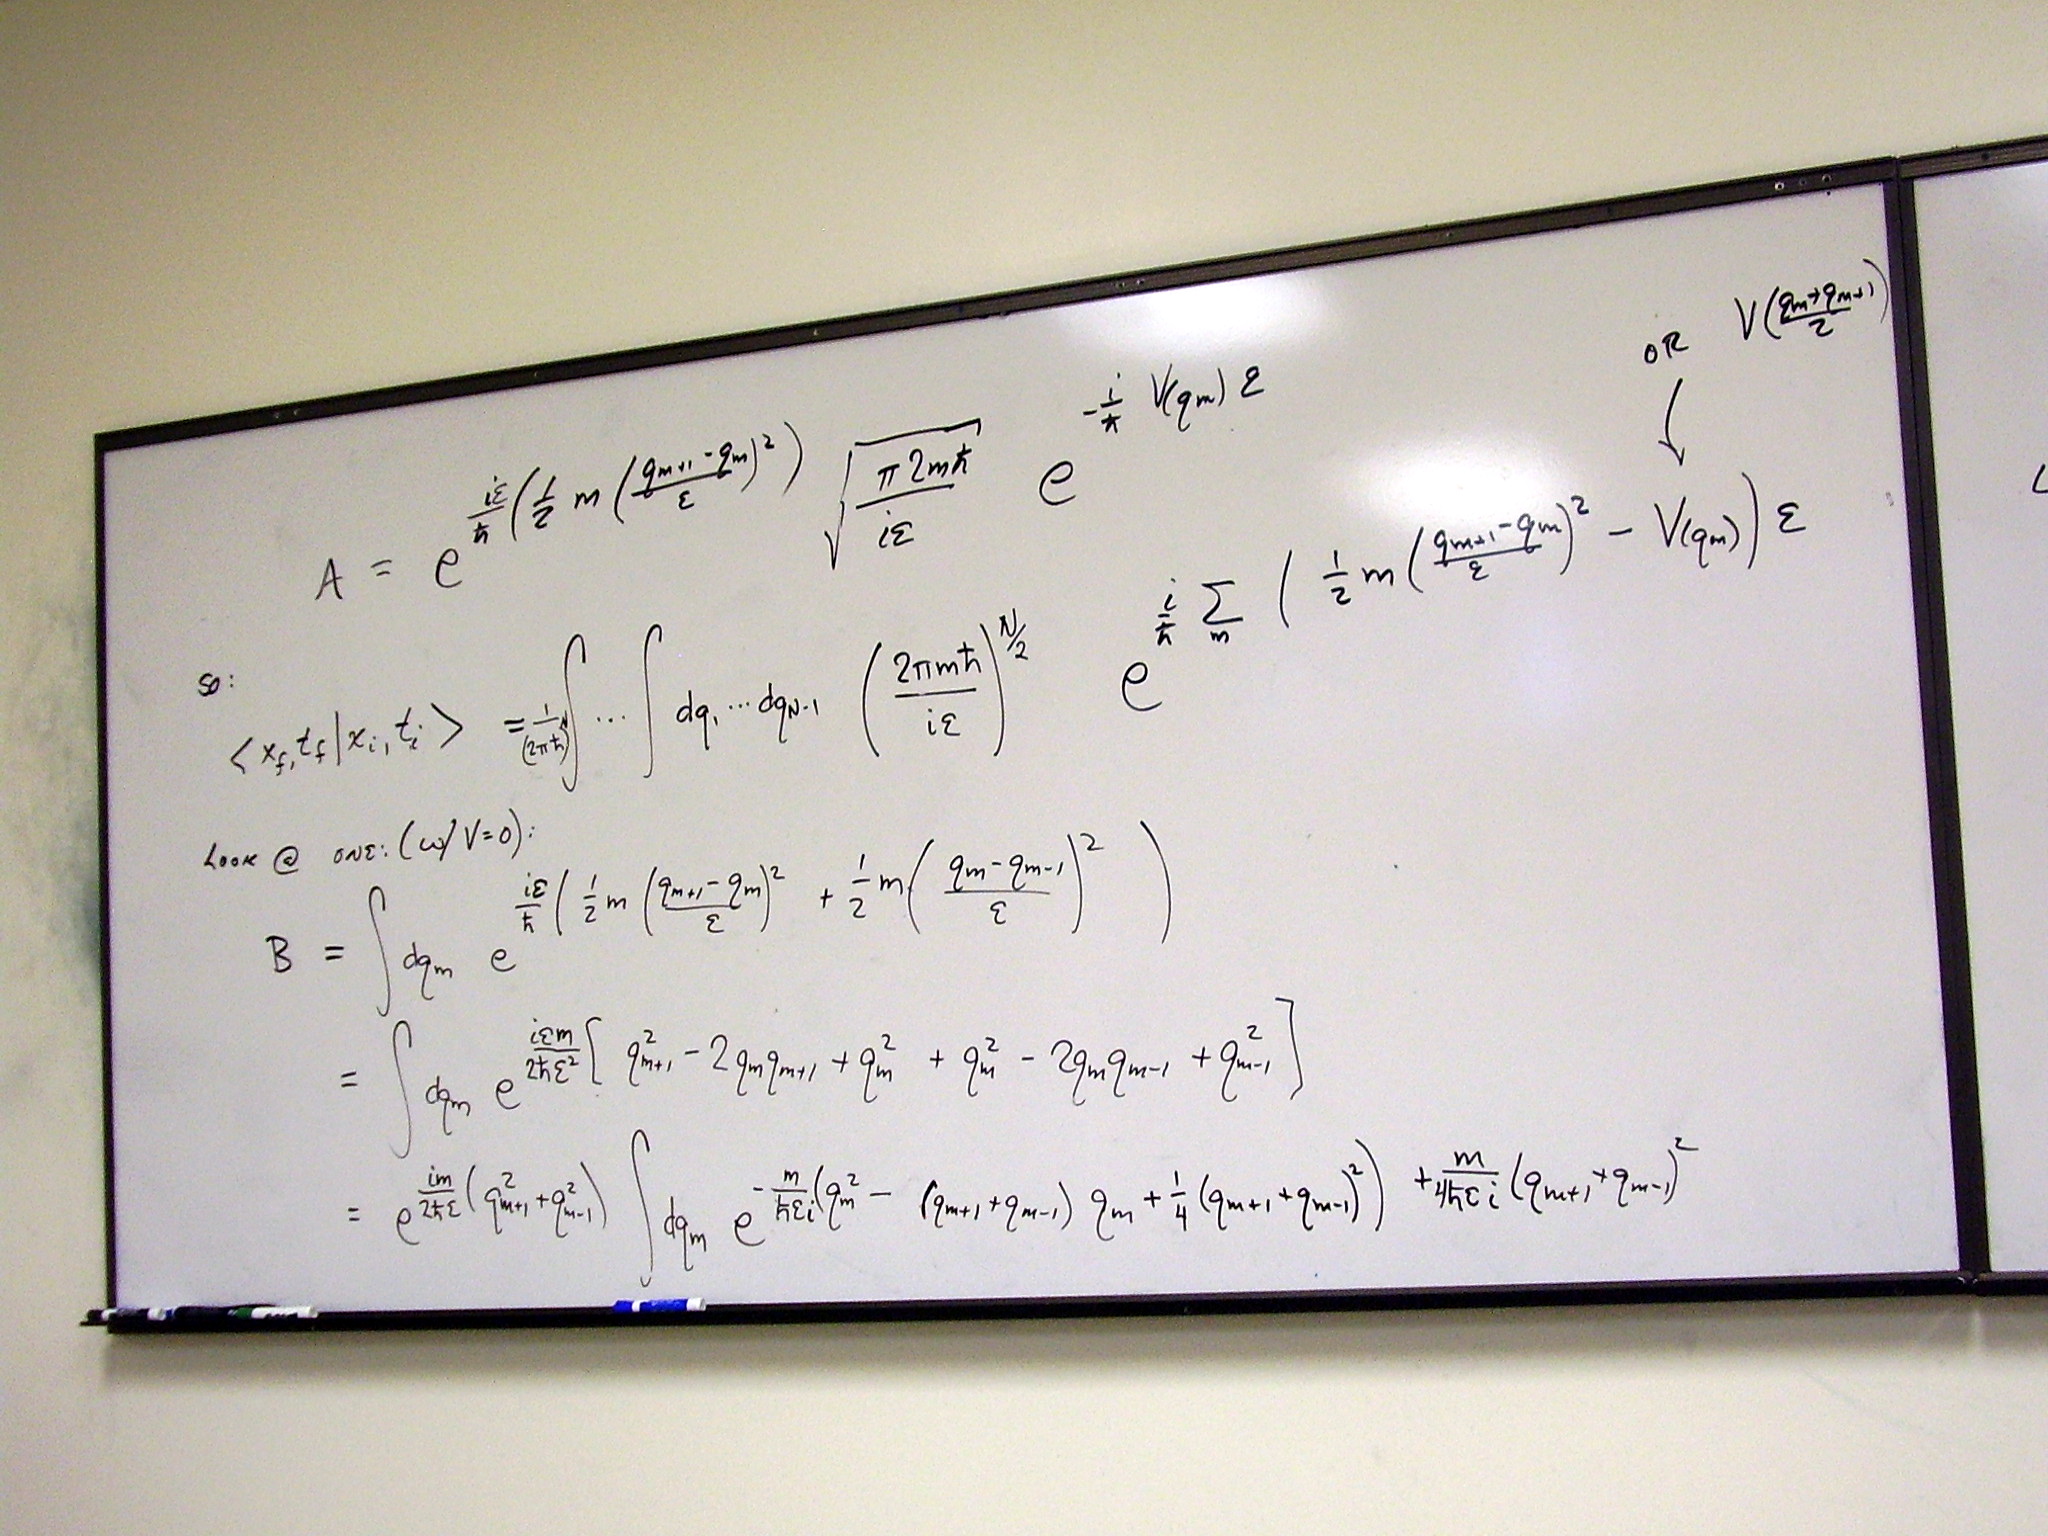 OR V((qₘ+qₘ₊₁)/2)
A = e^{(iε/ħ)(½ m ((qₘ₊₁ - qₘ)/ε)²)} √(π2mħ/(iε)) e^{-(i/ħ) V(qₘ) ε}
so:
<x_f, t_f | x_i, t_i> = 1/(2πħ)^N ∫ ... ∫ dq₁ ... dq_{N-1} (2πmħ/(iε))^{N/2} e^{(i/ħ) Σₘ (½ m ((qₘ₊₁ - qₘ)/ε)² - V(qₘ)) ε}
LOOK @ ONE: (w/ V=0):
B = ∫ dqₘ e^{(iε/ħ)(½ m ((qₘ₊₁ - qₘ)/ε)² + ½ m ((qₘ - qₘ₋₁)/ε)²)}
= ∫ dqₘ e^{(iεm/(2ħε²))[q²ₘ₊₁ - 2qₘqₘ₊₁ + q²ₘ + q²ₘ - 2qₘqₘ₋₁ + q²ₘ₋₁]}
= e^{(im/(2ħε))(q²ₘ₊₁ + q²ₘ₋₁)} ∫ dqₘ e^{-(m/(ħεi))(q²ₘ - (qₘ₊₁ + qₘ₋₁) qₘ + ¼ (qₘ₊₁ + qₘ₋₁)²) + (m/(4ħεi))(qₘ₊₁ + qₘ₋₁)²}